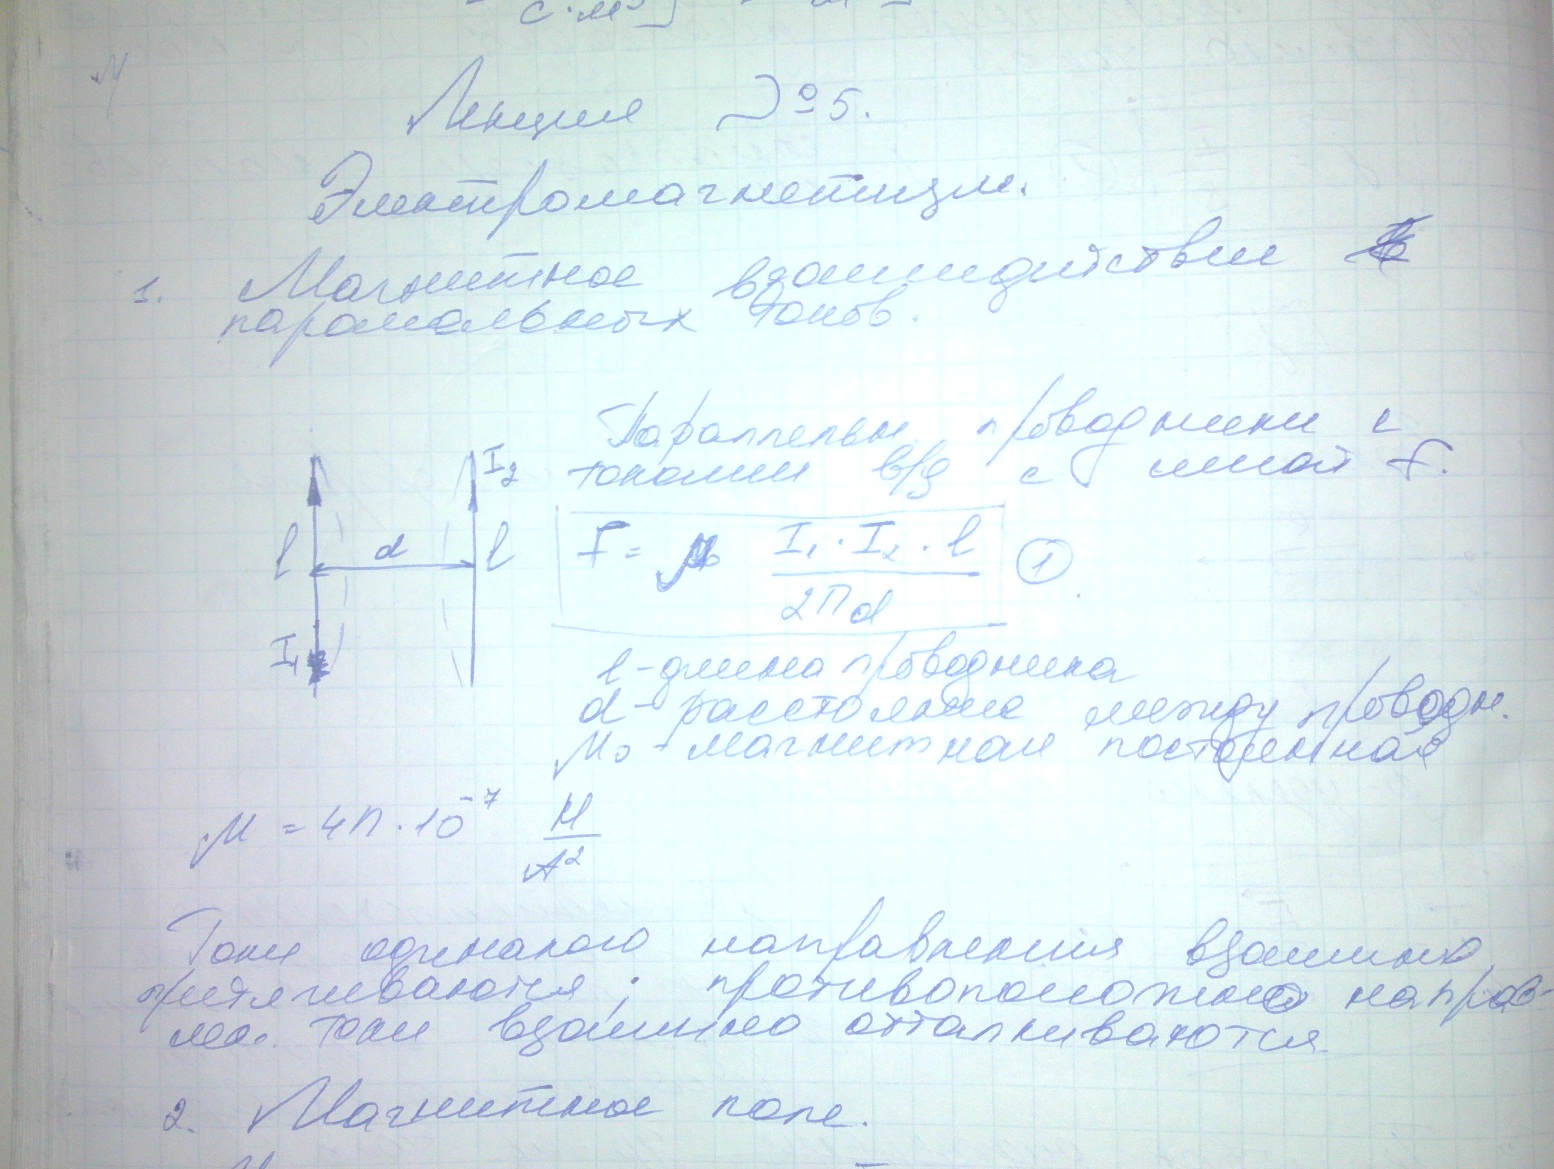 Лекция №5.
Электромагнетизм.
1. Магнитное взаимодействие
паралельных токов.
Параллельн. проводники с
токами в/д с силой F.
I₂
l d l
I₁
F = μ₀ I₁·I₂·l / 2πd ①
l - длина проводника
d - расстояние между проводн.
μ₀ - магнитная постоянная
μ = 4π·10⁻⁷ Н/А²
Токи одинакого направления взаимно
притягиваются; противоположно направ-
ла. токи взаимно отталкиваются.
2. Магнитное поле.